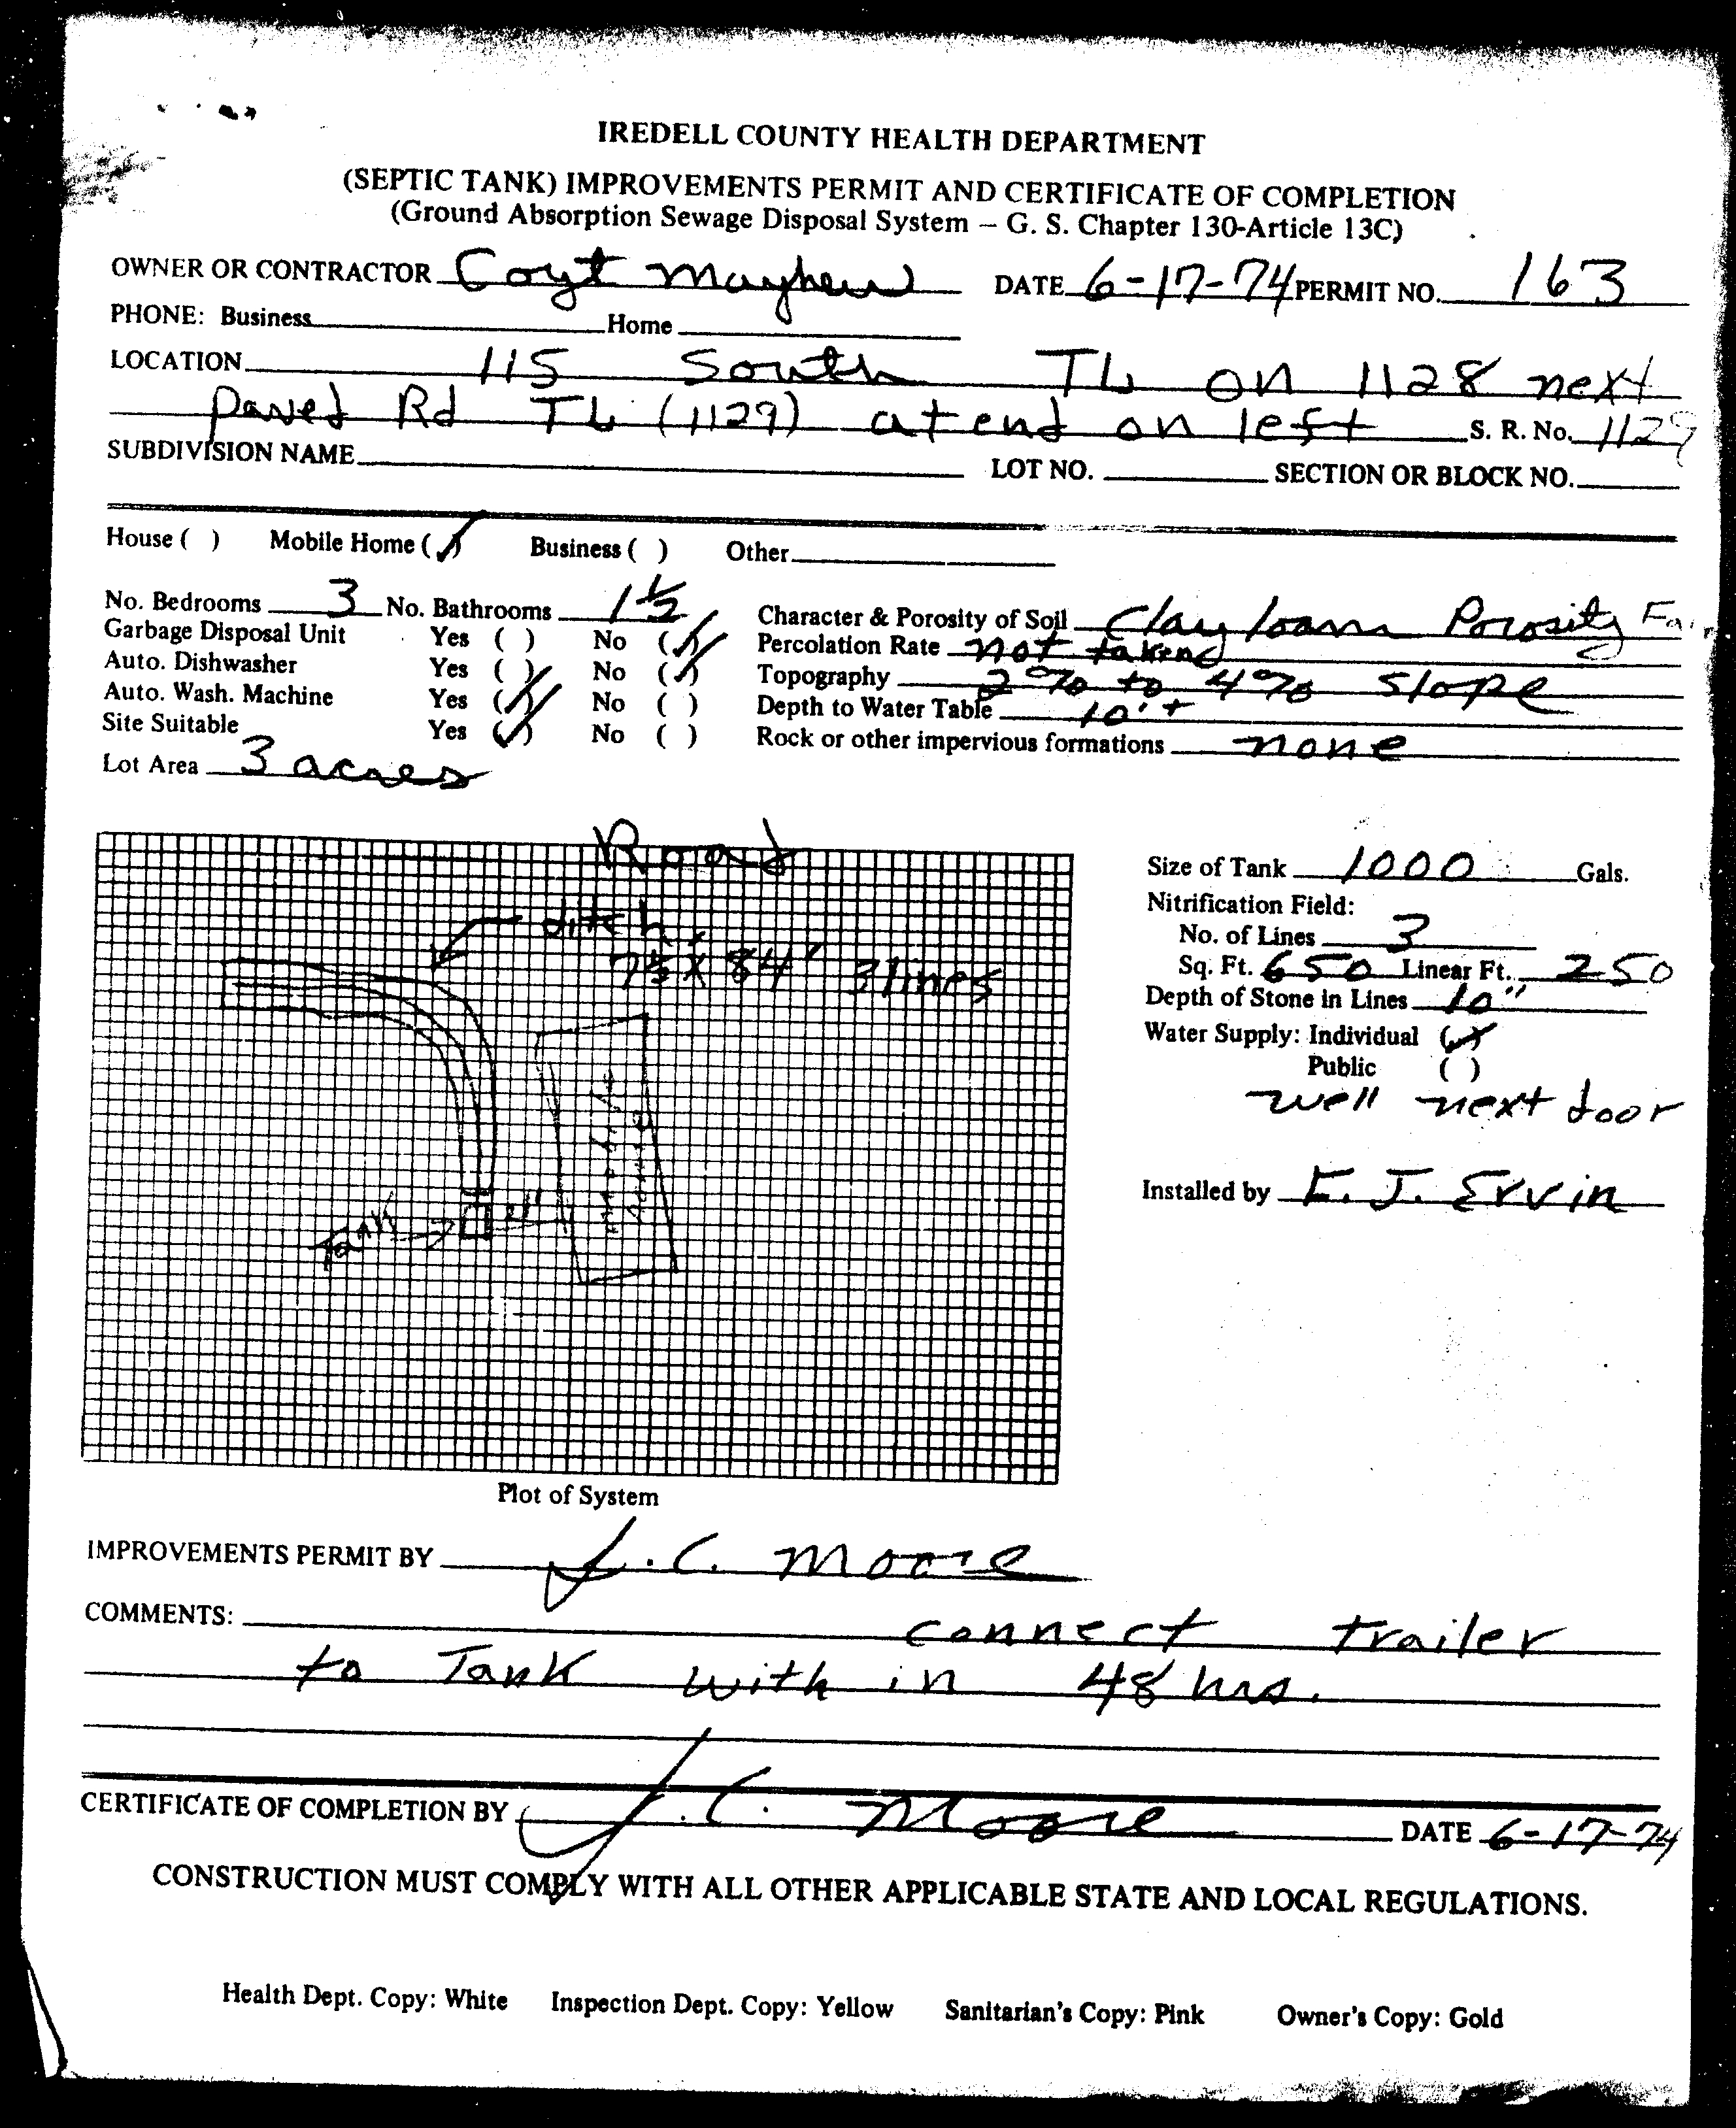 IREDELL COUNTY HEALTH DEPARTMENT
(SEPTIC TANK) IMPROVEMENTS PERMIT AND CERTIFICATE OF COMPLETION
(Ground Absorption Sewage Disposal System — G. S. Chapter 130-Article 13C)
OWNER OR CONTRACTOR Coyt Mayhew DATE 6-17-74 PERMIT NO. 163
PHONE: Business Home
LOCATION 115 South TL on 1128 next
paved Rd TL (1129) at end on left S. R. No. 1129
SUBDIVISION NAME LOT NO. SECTION OR BLOCK NO.
House ( ) Mobile Home (✓) Business ( ) Other
No. Bedrooms 3 No. Bathrooms 1 1/2 Character & Porosity of Soil Clay loam Porosity Fair
Garbage Disposal Unit Yes ( ) No (✓) Percolation Rate not taken
Auto. Dishwasher Yes ( ) No (✓) Topography 2% to 4% slope
Auto. Wash. Machine Yes (✓) No ( ) Depth to Water Table 10'+
Site Suitable Yes (✓) No ( ) Rock or other impervious formations none
Lot Area 3 acres
Road
ditch
84' 3 lines
mobile
home
Tank
Size of Tank 1000 Gals.
Nitrification Field:
No. of Lines 3
Sq. Ft. 650 Linear Ft. 250
Depth of Stone in Lines 10"
Water Supply: Individual (✓)
Public ( )
well next door
Installed by E. J. Ervin
Plot of System
IMPROVEMENTS PERMIT BY J. C. Moore
COMMENTS: connect trailer
to Tank with in 48 hrs.
CERTIFICATE OF COMPLETION BY J. C. Moore DATE 6-17-74
CONSTRUCTION MUST COMPLY WITH ALL OTHER APPLICABLE STATE AND LOCAL REGULATIONS.
Health Dept. Copy: White Inspection Dept. Copy: Yellow Sanitarian's Copy: Pink Owner's Copy: Gold